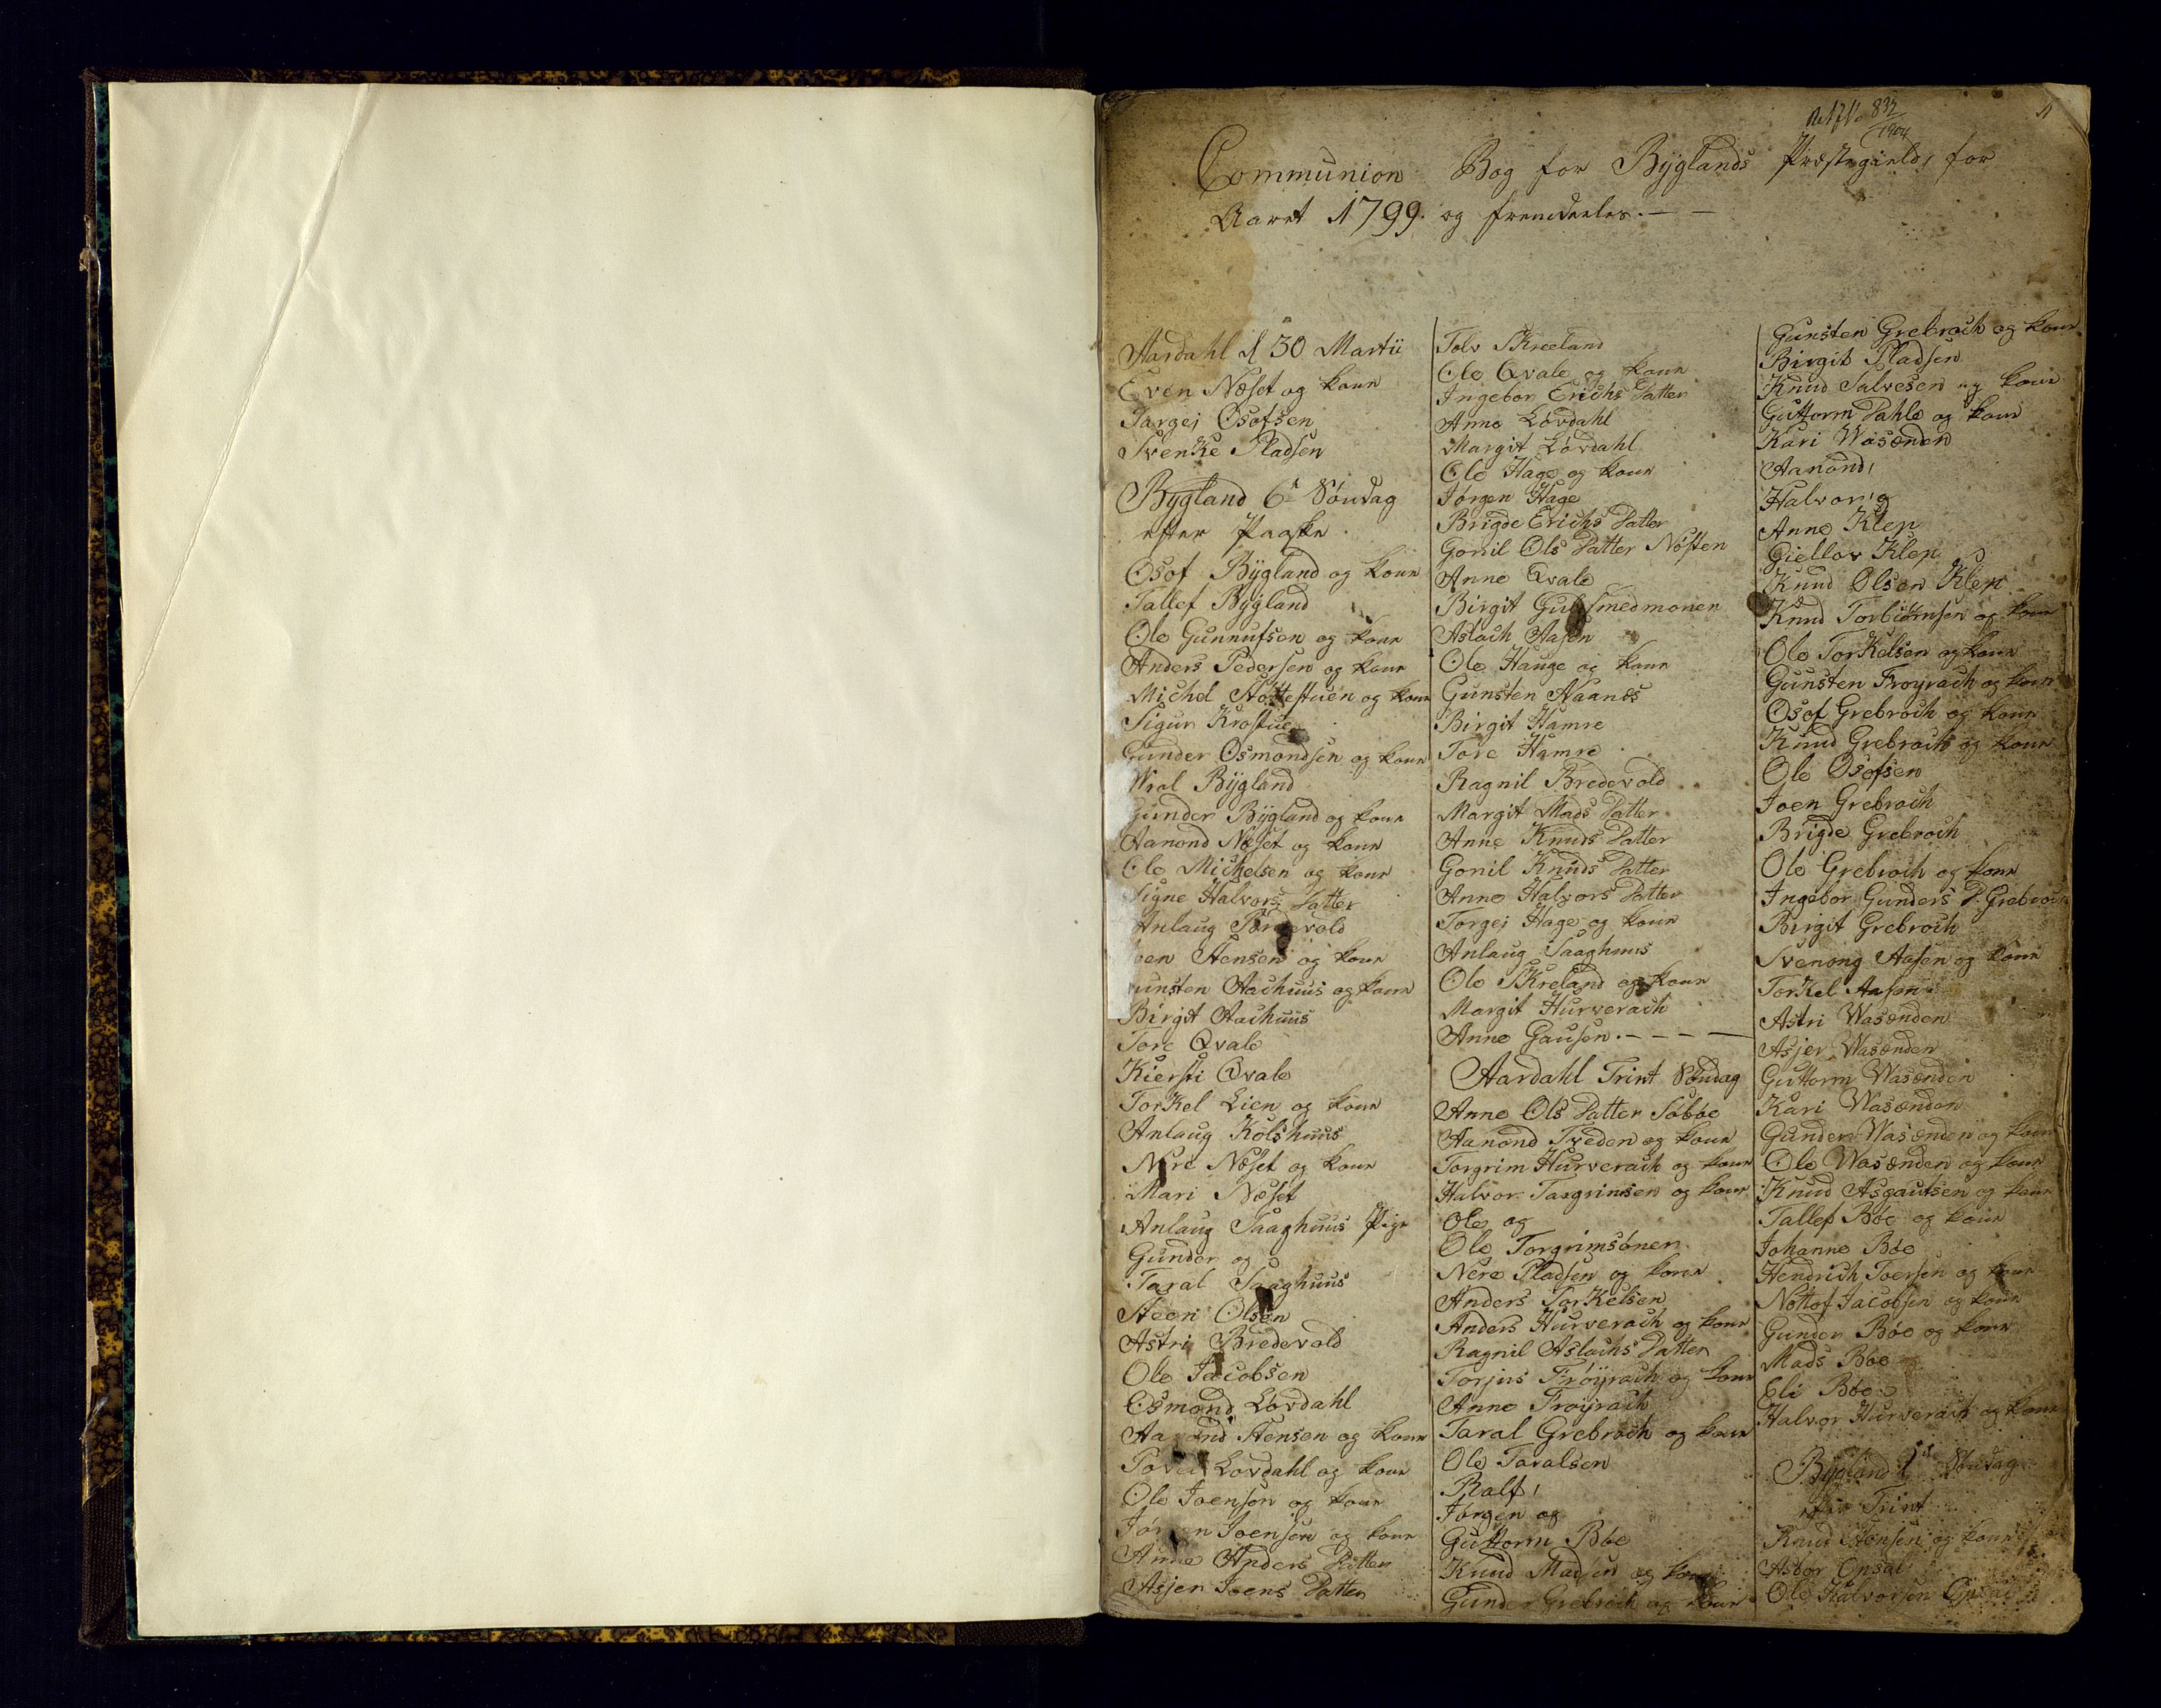 832
1904
Communion Bog for Byglands Præstegield, for
Aaret 1799. og fremdeeles.
Aardahl d 30 Martii
Even Næset og kone
Targei Osofsen
Svenke Pladsen
Bygland 6te Søndag
efter Paaske
Osof Bygland og kone
Tallef Bygland
Ole Gunnufsen og kone
Anders Pedersen og kone
Michel Stottestuen og kone
Sigur Krostue
Gunder Osmondsen og kone
Wral Bygland
Gunder Bygland og kone
Aanond Næset og kone
Ole Michelsen og kone
Signe Halvors Datter
Anlaug
Stensen og kone
unsten Aachuus og kone
Birgit Aachuus
Tore Qvale
Kiersti Qvale
Torkel Lien og kone
Anlaug Kolshuus
Nere Næset og kone
Mari Næset
Anlaug Saaghuus Pige
Gunder og
Taral Saaghuus
Steen Olsen
Astri Bredevold
Ole Jacobsen
Osmond Lovdahl
Aanond Stensen og kone
Lovdahl og kone
Ole Joensen og kone
Jørgen Joensen og kone
Anne Anders Datter
Asjer Joens Datter
Tolv Skreeland
Ole Qvale og kone
Ingebor Erichs Datter
Anne Løvdahl
Margit Løvdahl
Ole Hage og kone
Jørgen Hage
Brigde Erichs Datter
Gonil Ols Datter Nøsten
Anne Qvale
Birgit Gulsmedmonen
Aslach Aasen
Ole Hauge og kone
Gunsten Aaanæs
Birgit Hamre
Tore Hamre
Ragnil Bredevold
Margit Mads Datter
Anne Knuds Datter
Gonil Knuds Datter
Anne Halvors Datter
Torgei Hage og kone
Anlaug Saaghuus
Ole Skreland og kone
Margit Hurverach
Anne Gausen
Aardahl Trint Søndag
Anne Ols Datter Søbøe
Aanond Tveden og kone
Torgrim Hurverach og kone
Halvor Targrimsen og kone
Ole og
Ole Torgrimsønner
Nere Pladsen og kone
Anders Torkelsen
Anders Hurverach og kone
Ragnil Aslachs Datter
Torjus Frøyrach og kone
Anne Frøyrach
Taral Grebroch og kone
Ole Taralsen
Ralf,
Jørgen og
Guttorm Bøe
Knud Madsen og kone
Gunder Grebroch og kone
Gunsten Grebroch og kone
Birgit Pladsen
Knud Salvesen og kone
Guttorm Dahle og kone
Kari Wasænden
Aanond,
Halvor og
Anne Klep
Giellov Klep
Knud Olsen Klep
Knud Torbiørnsen og kone
Ole Torkelsen og kone
Gunsten Froyrach og kone
Osof Grebroch og kone
Knud Grebroch og kone
Ole Osofsen
Joen Grebroch
Brigde Grebroch
Ole Grebroch og kone
Ingebor Gunders D. Grebroch
Birgit Grebroch
Svenong Aasen og kone
Torkel Aasen
Astri Wasænden
Asjer Wasænden
Guttorm Wasænden
Kari Wasænden
Gunder Wasænden og kone
Ole Wasænden og kone
Knud Asgautsen og kone
Tallef Bøe og kone
Johanne Bøe
Hendrich Toersen og kone
Nottof Jacobsen og kone
Gunder Bøe og kone
Mads Bøe
Eli Bøe
Halvor Hurverach og kone
Bygland Søndag
efter Trint
Knud Stensen og kone
Asbor Opsal
Ole Halvorsen Opsal